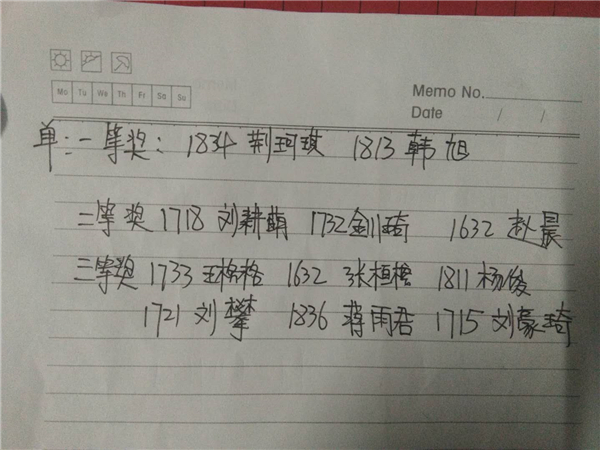 Memo No.
Mo Tu We Th Fr Sa Su
Date / /
单:一等奖: 1834 荆珂琪 1813 韩旭
二等奖 1718 刘耕萌 1732 刘琦 1632 赵晨
三等奖 1733 王格格 1632 张桓 1811 杨俊
1721 刘攀 1836 蒋雨君 1715 刘豪琦